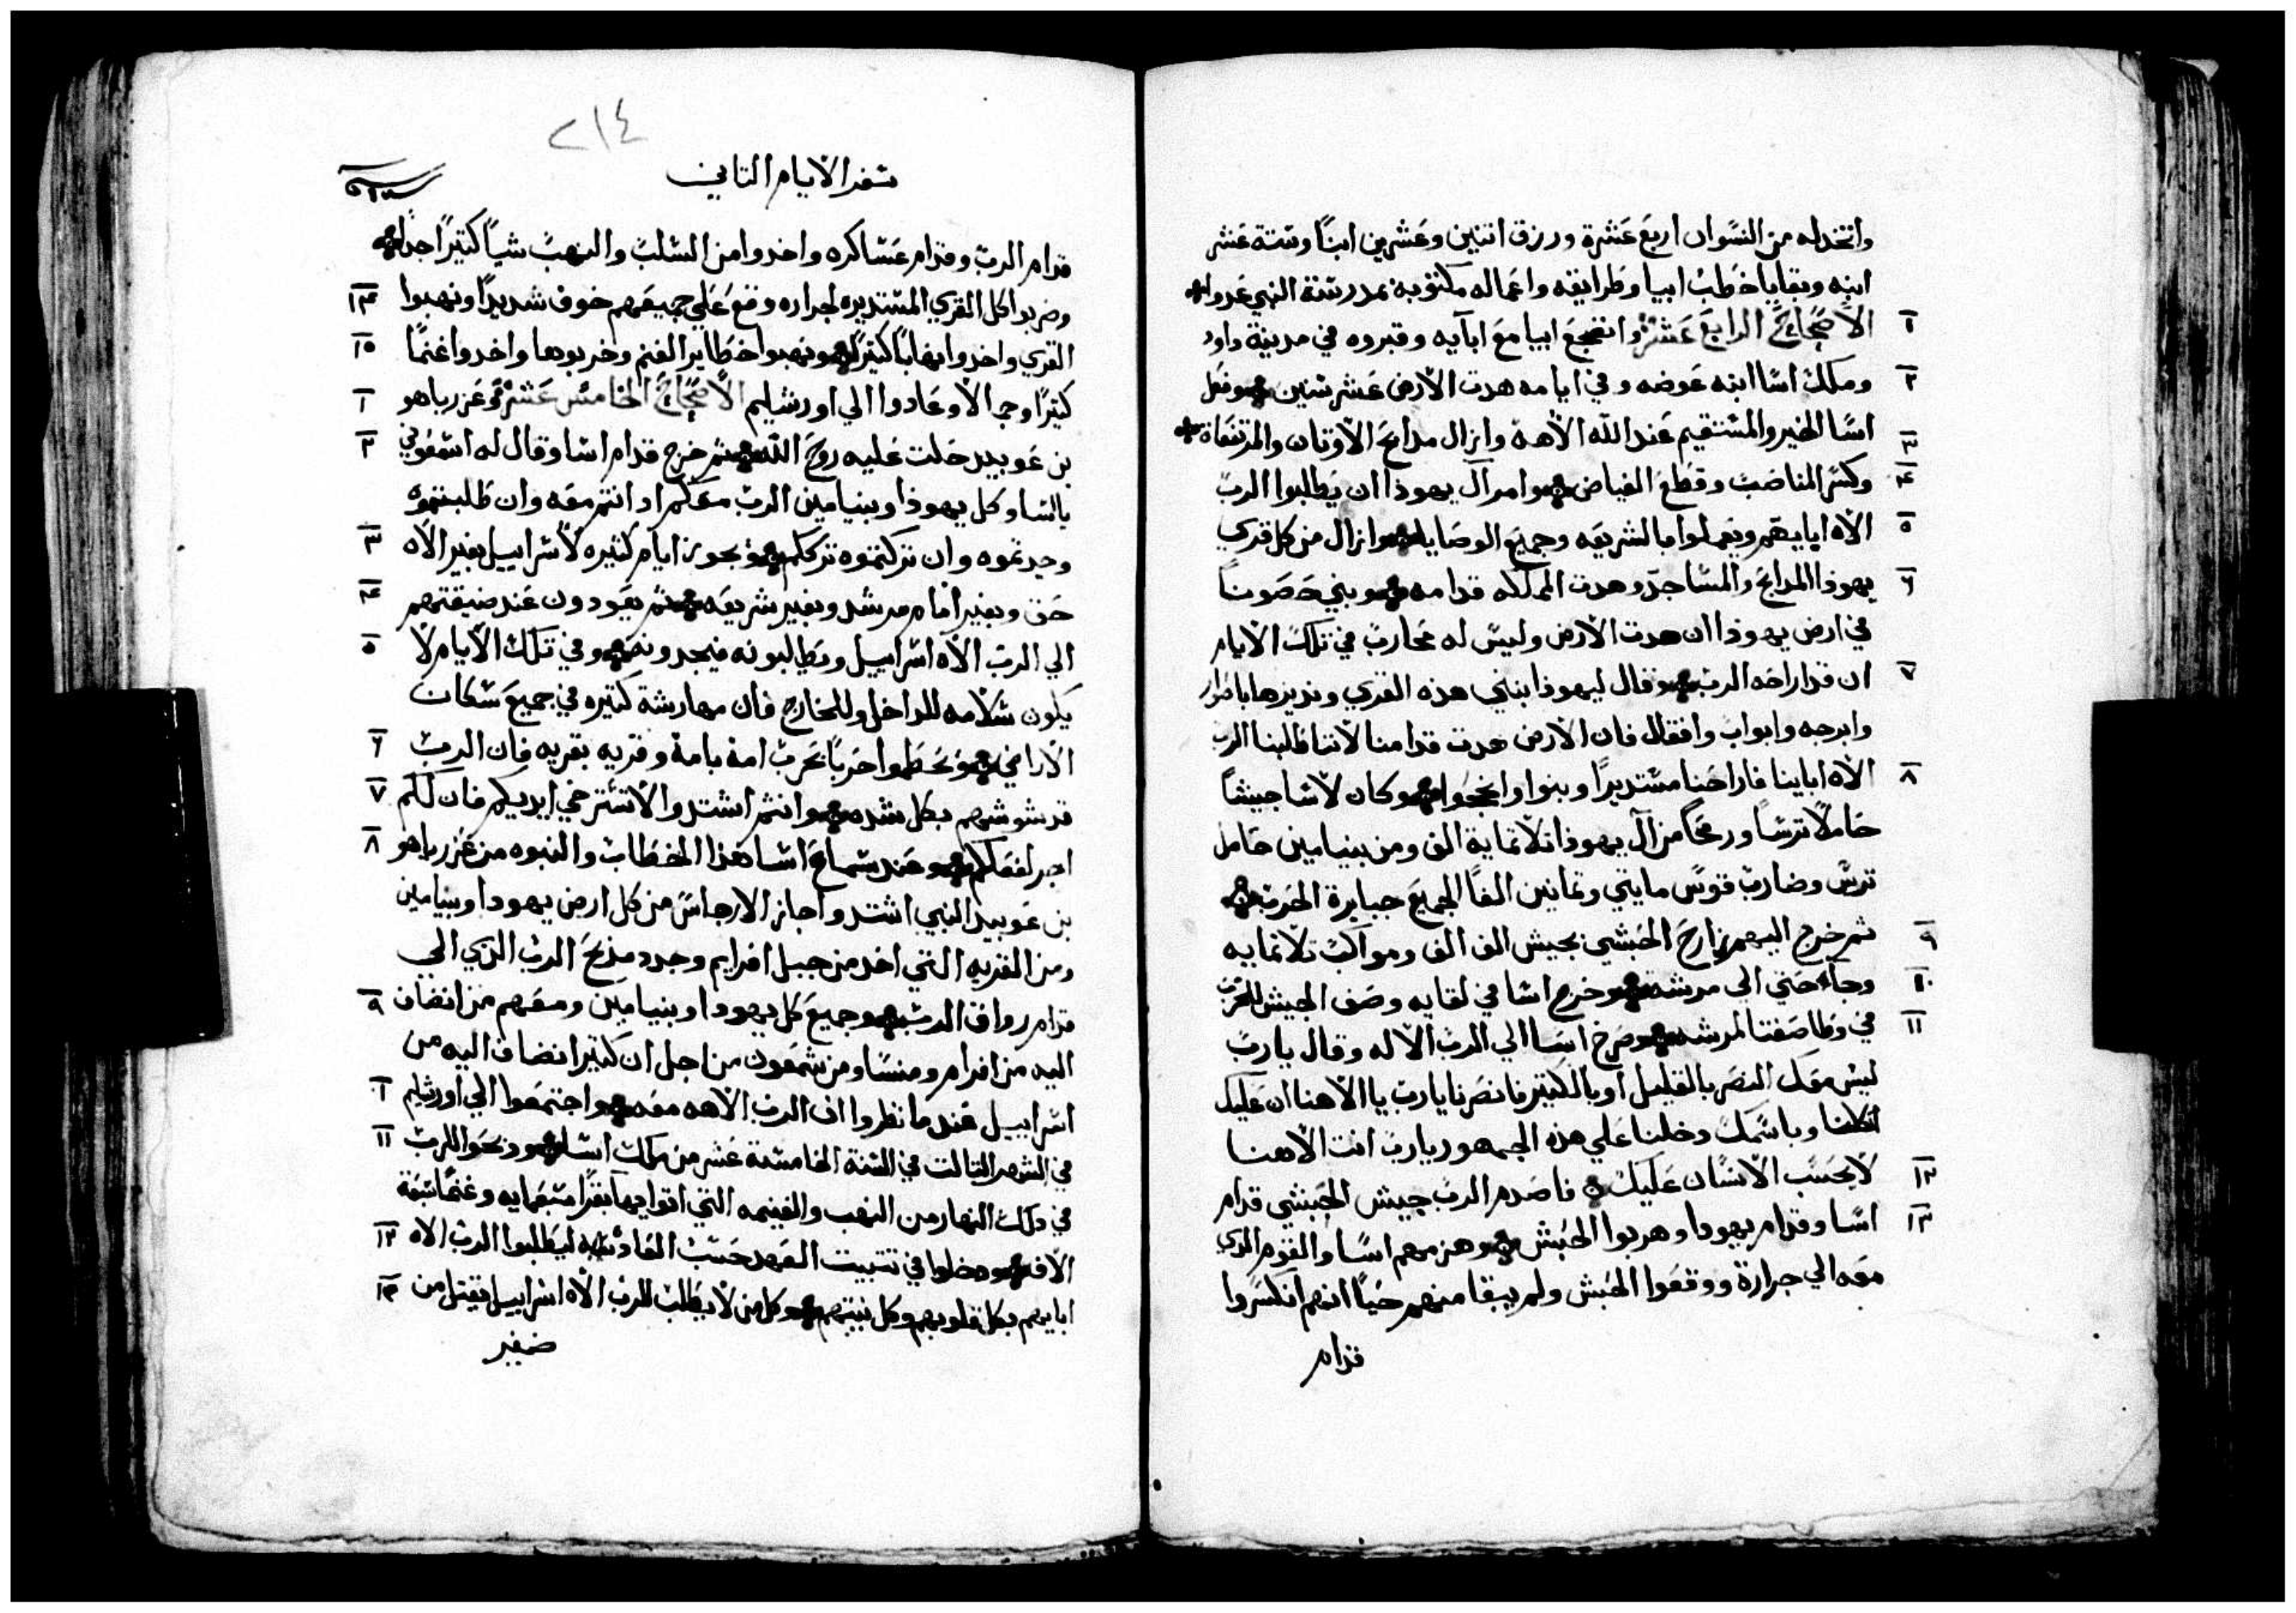 واتخد له من النسوان اربع عشرة ورزق اتنين وعشرين ابنًا وستة عشر
ابنه وبقايا خطب ابيا وطرايقه واعماله مكتوبة بمدرسة النبي عدوا
١ الأصحاح الرابع عشر وانضجع ابيا مع ابآيه وقبروه في مدينة داود
٢ وملك اسا ابنه عوضه وفي ايامه هدت الارض عشر سنين وفعل
٣ اسا الخير والمستقيم عند الله الاهه وازال مدابح الاوتان والمرتفعاة
٤ وكسر المناصب وقطع الغياض وامر آل يهوذا ان يطالبوا الرب
٥ الاه ابايهم ويعملوا بالشريعه وجميع الوصايا وازال من كل قري
٦ يهوذا المدابح والمساجد وهدت المملكه قدامه وبني حصونًا
في ارض يهوذا ان هدت الارض وليس له محارب في تلك الايام
٧ ان قد اراحه الرب وقال ليهوذا ابنني هذه القري ونديرها باسوار
وابرجه وابواب واقفال فان الارض هدت قدامنا لاننا طلبنا الرب
٨ الاه اباينا فاراحنا مستديرًا وبنوا وانجحوا وكان لاسا جيشًا
حاملًا ترسًا ورمحًا من آل يهوذا تلاتماية الف ومن بنيامين حامل
ترس وضارب قوس مايتي وتمانين الفًا الجميع جبابرة الحرب
٩ تم خرج اليهم زارح الحبشي بجيش الف الف ومواكب تلاتمايه
١٠ وجآء حتي الي مرشه وخرج اسا في لقايه وصف الجيش للحرب
١١ في وطا صفتا لمرشه وصرخ اسا الي الرب الاله وقال يارب
ليس معك النصر بالقليل او بالكتير فانصرنا يارب يا الاهنا ان عليك
اتكلنا وباسمك دخلنا علي هذه الجمهور يارب انت الاهنا
١٢ لا يحسب الانسان عليك فاصدم الرب جيش الحبشي قدام
١٣ اسا وقدام يهودا وهربوا الحبش وهزمهم اسا والقوم الدي
معه الي جرارة ووقعوا الحبش ولم يبقا منهم حيًا انهم انكسروا
قدام
٢١٤
سفر الايام التاني
قدام الرب وقدام عساكره واخدوا من السلب والنهب شيًا كتيرًا جدا
١٤ وضربوا كل القري المستديره لجراره وقع علي جميعهم خوف شديدًا ونهبوا
١٥ القري واخدوا نهابًا كتيرًا ونهبوا حظاير الغنم وخربوها واخدوا غنمًا
١ كتيرًا وجمالا وعادوا الي اورشليم الأصحاح الخامس عشر وعزرياهو
٢ بن عوبيد حلت عليه روح الله تم خرج قدام اسا وقال له اسمعوني
يا اسا وكل يهوذا وبنيامين الرب معكم اد انتم معه وان طلبتموه
٣ وجدتموه وان تركتموه تركم وبجوز ايام كتيره لاسراييل بغير الاه
٤ حق وبغير امام مرشد وبغير شريعه تم يعودون عند ضيقتهم
٥ الي الرب الاه اسراييل ويطالبونه فيجدونه وفي تلك الايام لا
يكون سلامه للداخل وللخارج فان مهارشة كتيره في جميع سكان
٦ الاراضي وتحطموا حربًا بحرب امة بامة وقريه بقريه فان الرب
٧ قد شوشهم بكل شده وانتم اشتدوا لا تسترخي ايديكم فان لكم
٨ اجر لفعلكم وعند سماع اسا هذا الخطاب والنبوه من عزرياهو
بن عوبيد النبي اشتد واجاز الارجاس من كل ارض يهودا وبنيامين
ومن القريه التي اخد من جبل افرايم وجدد مذبح الرب الدي الي
٩ قدام رواق الرب وجميع كل يهودا وبنيامين ومعهم من انضاف
اليه من افرام ومنسا ومن شمعون من اجل ان كتيرا انضاف اليه من
١٠ اسراييل عند ما نظروا ان الرب الاهه معه واجتمعوا الي اورشليم
١١ في الشهر التالت في السنة الخامسة عشر من ملك اسا ودبحوا للرب
في دلك النهار من النهب والغنيمه التي اتوا بها بقرًا سبعمايه وغنمًا سبعة
١٢ الاف ودخلوا في تتبيت العهد حسب العادة ليطلبوا الرب الاه
١٣ ابايهم بكل قلوبهم وكل نيتهم وكل من لا يطلب للرب الاه اسراييل يقتل من
صغير